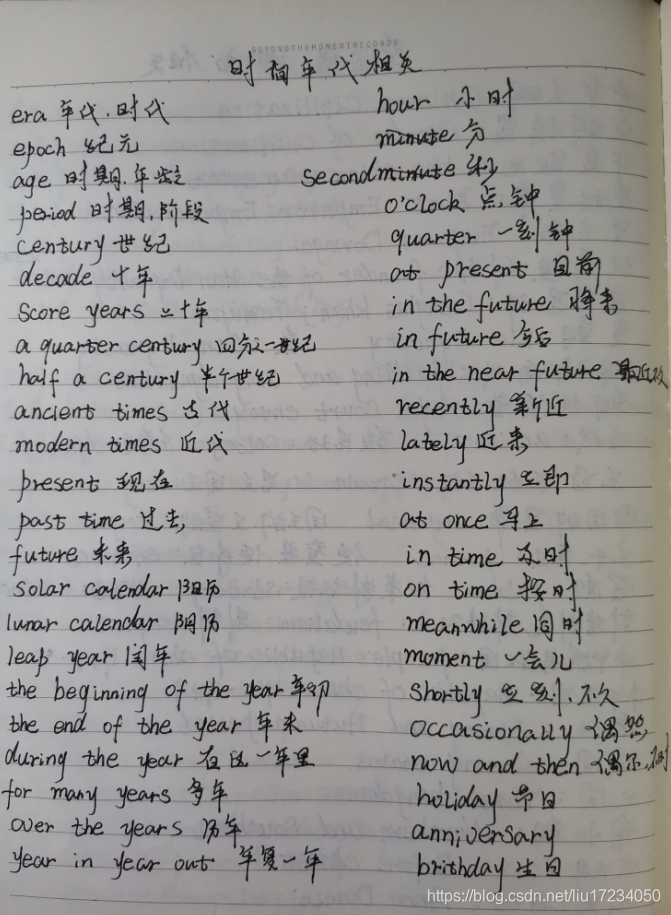 BEYONDTHEMOMENTRECORDS
时间年代相关
era 年代.时代
epoch 纪元
age 时期.年龄
period 时期.阶段
century 世纪
decade 十年
score years 二十年
a quarter century 四分之一世纪
half a century 半个世纪
ancient times 古代
modern times 近代
present 现在
past time 过去
future 未来
solar calendar 阳历
lunar calendar 阴历
leap year 闰年
the beginning of the year 年初
the end of the year 年末
during the year 在这一年里
for many years 多年
over the years 历年
year in year out 年复一年
hour 小时
minute 分
second minute 秒
o'clock 点钟
quarter 一刻钟
at present 目前
in the future 将来
in future 今后
in the near future 最近的
recently 新近
lately 近来
instantly 立即
at once 马上
in time 及时
on time 按时
meanwhile 同时
moment 一会儿
shortly 立刻.不久
occasionally 偶然
now and then 偶尔.
holiday 节日
anniversary
brithday 生日
https://blog.csdn.net/liu17234050